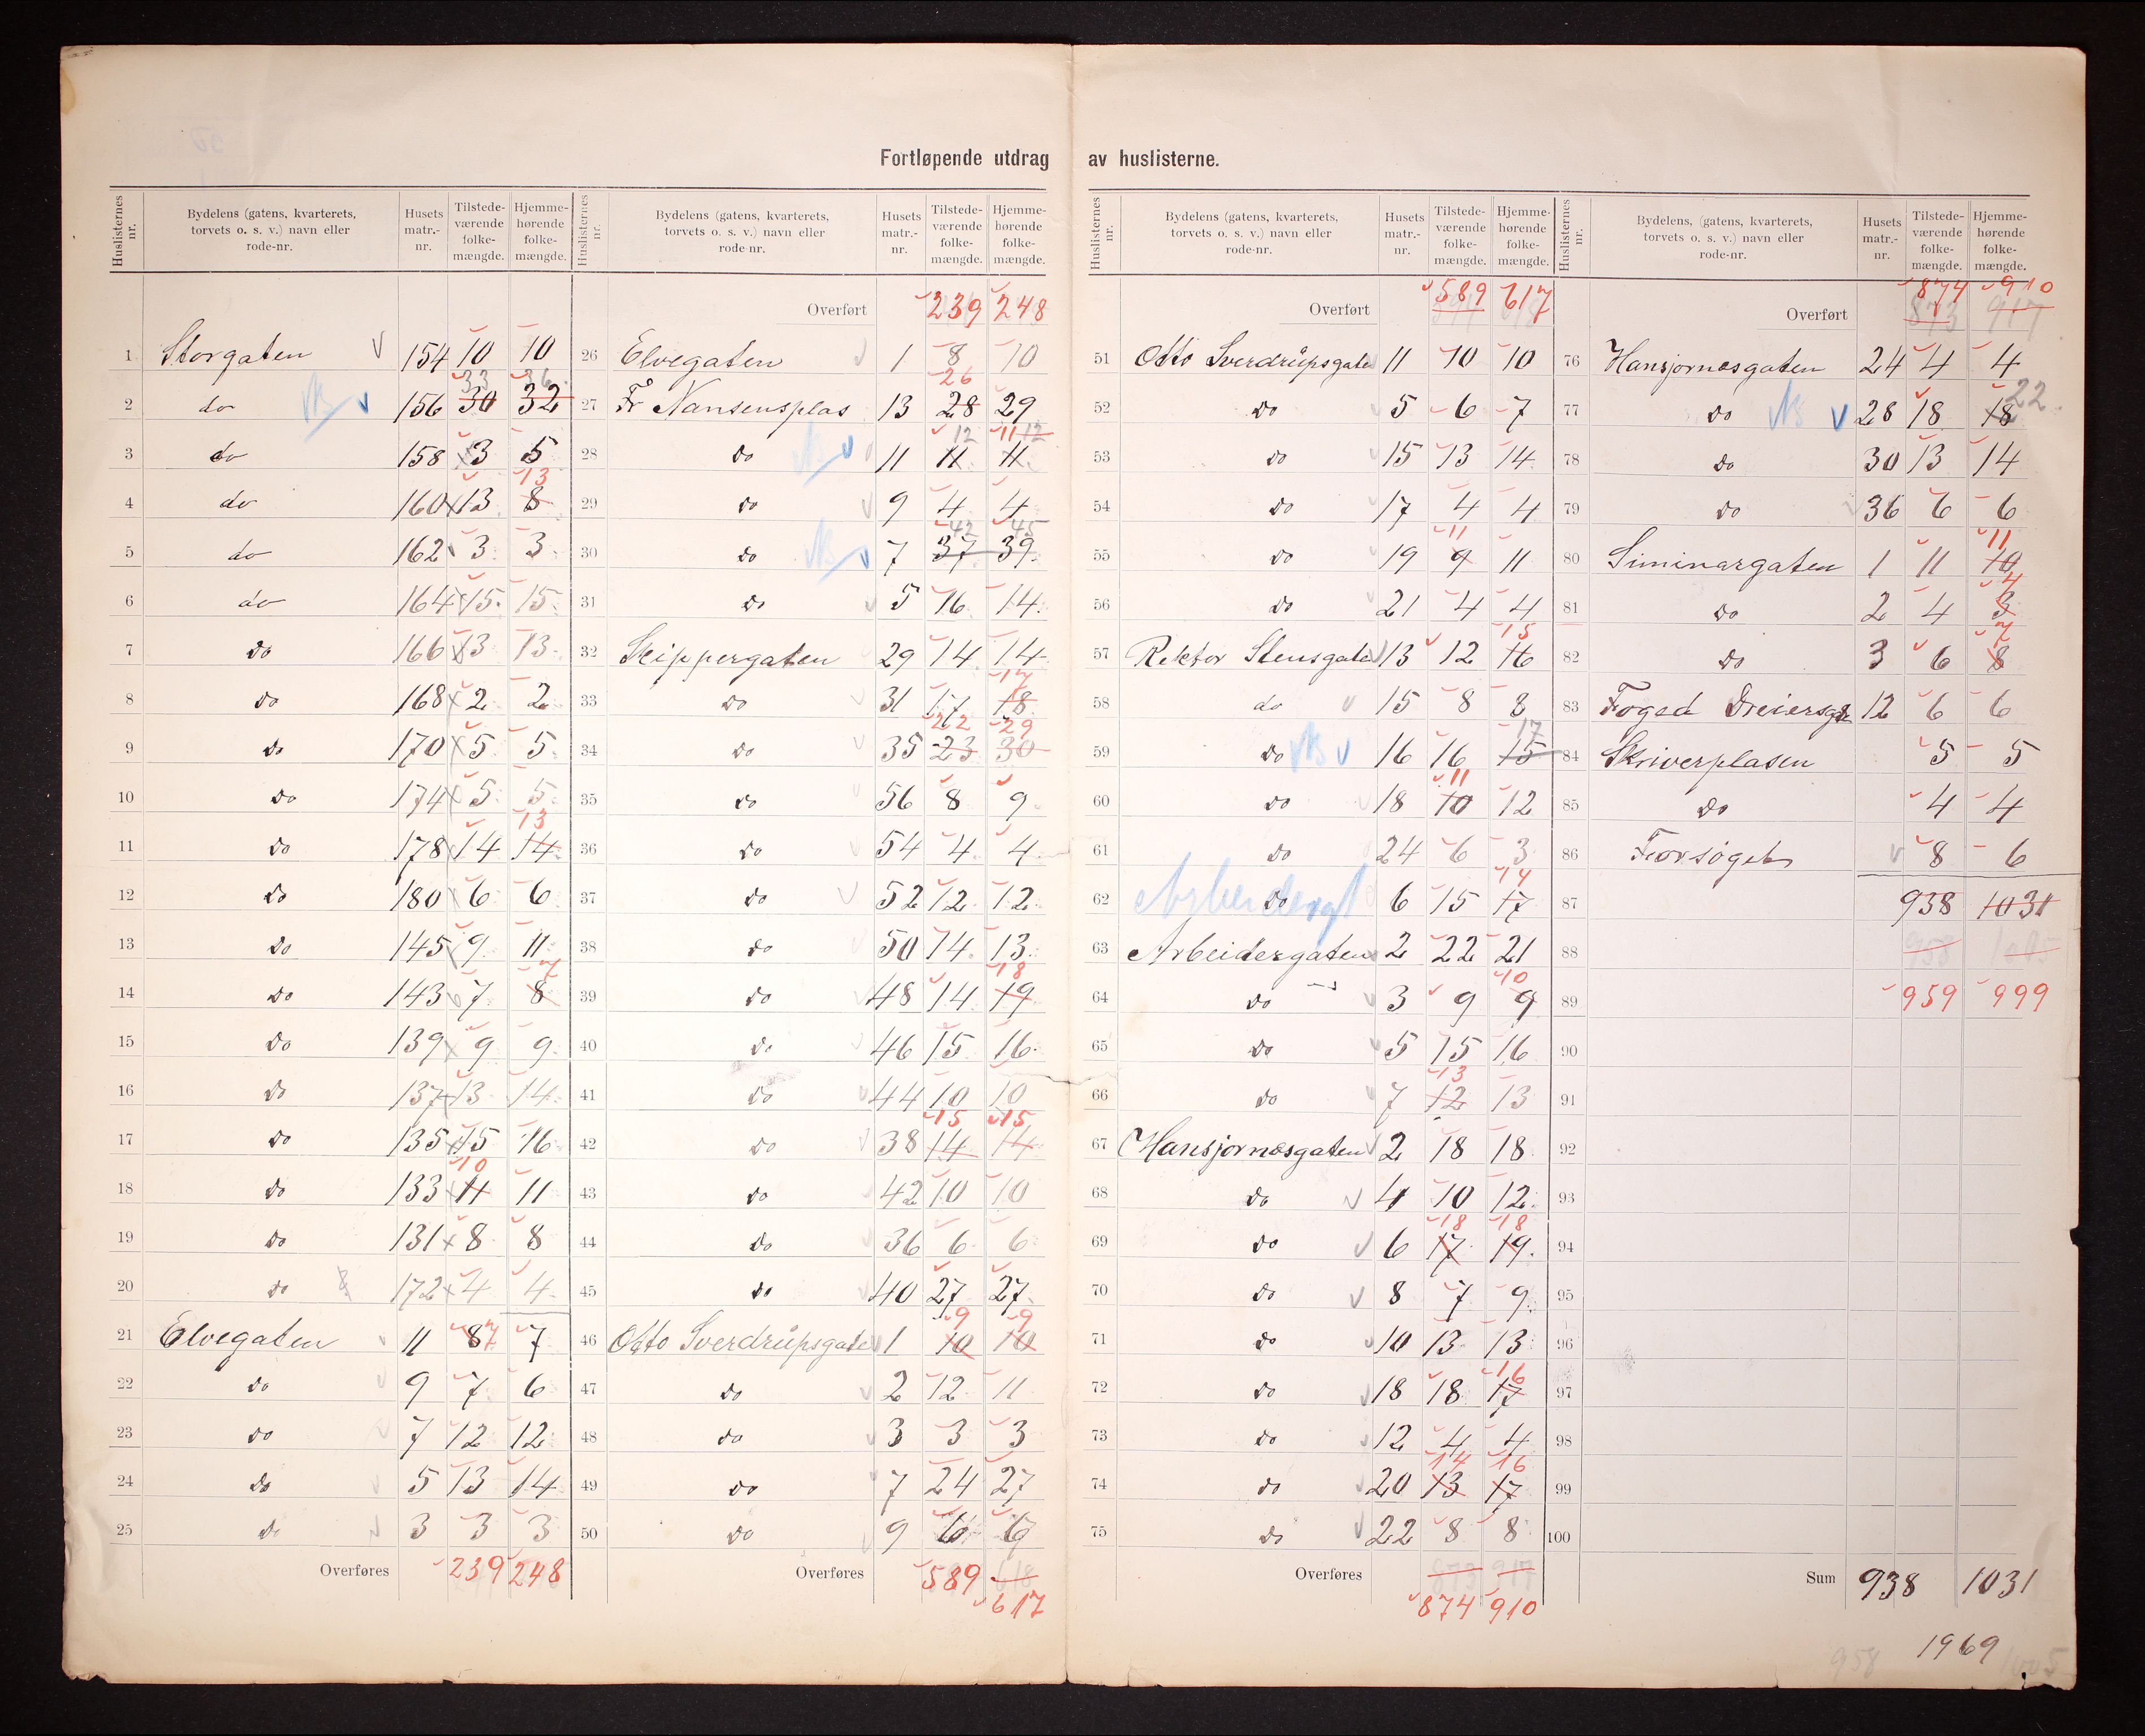 Fortløpende utdrag av huslisterne.
Huslisternes nr. Bydelens (gatens, kvarterets, torvets o. s. v.) navn eller rode-nr. Husets matr.-nr. Tilstede-værende folke-mængde. Hjemme-hørende folke-mængde.
1 Storgaten 154 10 10
2 do 156 30 33 32 36
3 do 158 3 5
4 do 160 13 8 13
5 do 162 3 3
6 do 164 15 15
7 do 166 13 13
8 do 168 2 2
9 do 170 5 5
10 do 174 5 5
11 do 178 14 14 13
12 do 180 6 6
13 do 145 9 11
14 do 143 7 8 7
15 do 139 9 9
16 do 137 13 14
17 do 135 15 16
18 do 133 11 10 11
19 do 131 8 8
20 do 172 4 4
21 Elvegaten 11 8 7 7
22 do 9 7 6
23 do 7 12 12
24 do 5 13 14
25 do 3 3 3
Overføres 239 248
Huslisternes nr. Bydelens (gatens, kvarterets, torvets o. s. v.) navn eller rode-nr. Husets matr.-nr. Tilstede-værende folke-mængde. Hjemme-hørende folke-mængde.
Overført 239 248
26 Elvegaten 1 8 10
27 Fr Nansensplas 13 28 26 29
28 do 11 11 12 11 11 12
29 do 9 4 4
30 do 7 37 42 39 45
31 do 5 16 14
32 Skippergaten 29 14 14
33 do 31 17 18 17
34 do 35 23 22 30 29
35 do 56 8 9
36 do 54 4 4
37 do 52 12 12
38 do 50 14 13
39 do 48 14 19 18
40 do 46 15 16
41 do 44 10 10
42 do 38 14 15 14 15
43 do 42 10 10
44 do 36 6 6
45 do 40 27 27
46 Otto Sverdrupsgate 1 10 9 10 9
47 do 2 12 11
48 do 3 3 3
49 do 7 24 27
50 do 9 6 6
Overføres 589 618
617
Huslisternes nr. Bydelens (gatens, kvarterets, torvets o. s. v.) navn eller rode-nr. Husets matr.-nr. Tilstede-værende folke-mængde. Hjemme-hørende folke-mængde.
Overført 589 617
51 Otto Sverdrupsgate 11 10 10
52 do 5 6 7
53 do 15 13 14
54 do 17 4 4
55 do 19 9 11 11
56 do 21 4 4
57 Rektor Stensgate 13 12 16 15
58 do 15 8 8
59 do 16 16 15 17
60 do 18 10 11 12
61 do 24 6 3
62 do Arbeidergt 6 15 17 14
63 Arbeidergaten 2 22 21
64 do 3 9 9 10
65 do 5 15 16
66 do 7 12 13 13
67 Hansjornæsgaten 2 18 18
68 do 4 10 12
69 do 6 17 18 19 18
70 do 8 7 9
71 do 10 13 13
72 do 18 18 17 16
73 do 12 4 4
74 do 20 13 14 17 16
75 do 22 8 8
Overføres 873 917
874 910
Huslisternes nr. Bydelens, (gatens, kvarterets, torvets o. s. v.) navn eller rode-nr. Husets matr.-nr. Tilstede-værende folke-mængde. Hjemme-hørende folke-mængde.
874 910
Overført 873 917
76 Hansjornæsgaten 24 4 4
77 do 28 18 18 22
78 do 30 13 14
79 do 36 6 6
80 Siminargaten 1 11 10 11
81 do 2 4 3 4
82 do 3 6 8 7
83 Foged Dreiersgt 12 6 6
84 Skriverplasen 5 5
85 do 4 4
86 Forsøget 8 6
87 938 1031
88 958 1005
89 959 999
90
91
92
93
94
95
96
97
98
99
100
Sum 938 1031
1969
958 1005